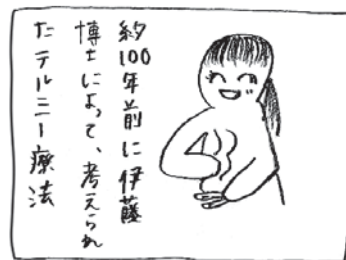 約100年前に伊藤
博士によって、考えられ
たテルミー療法